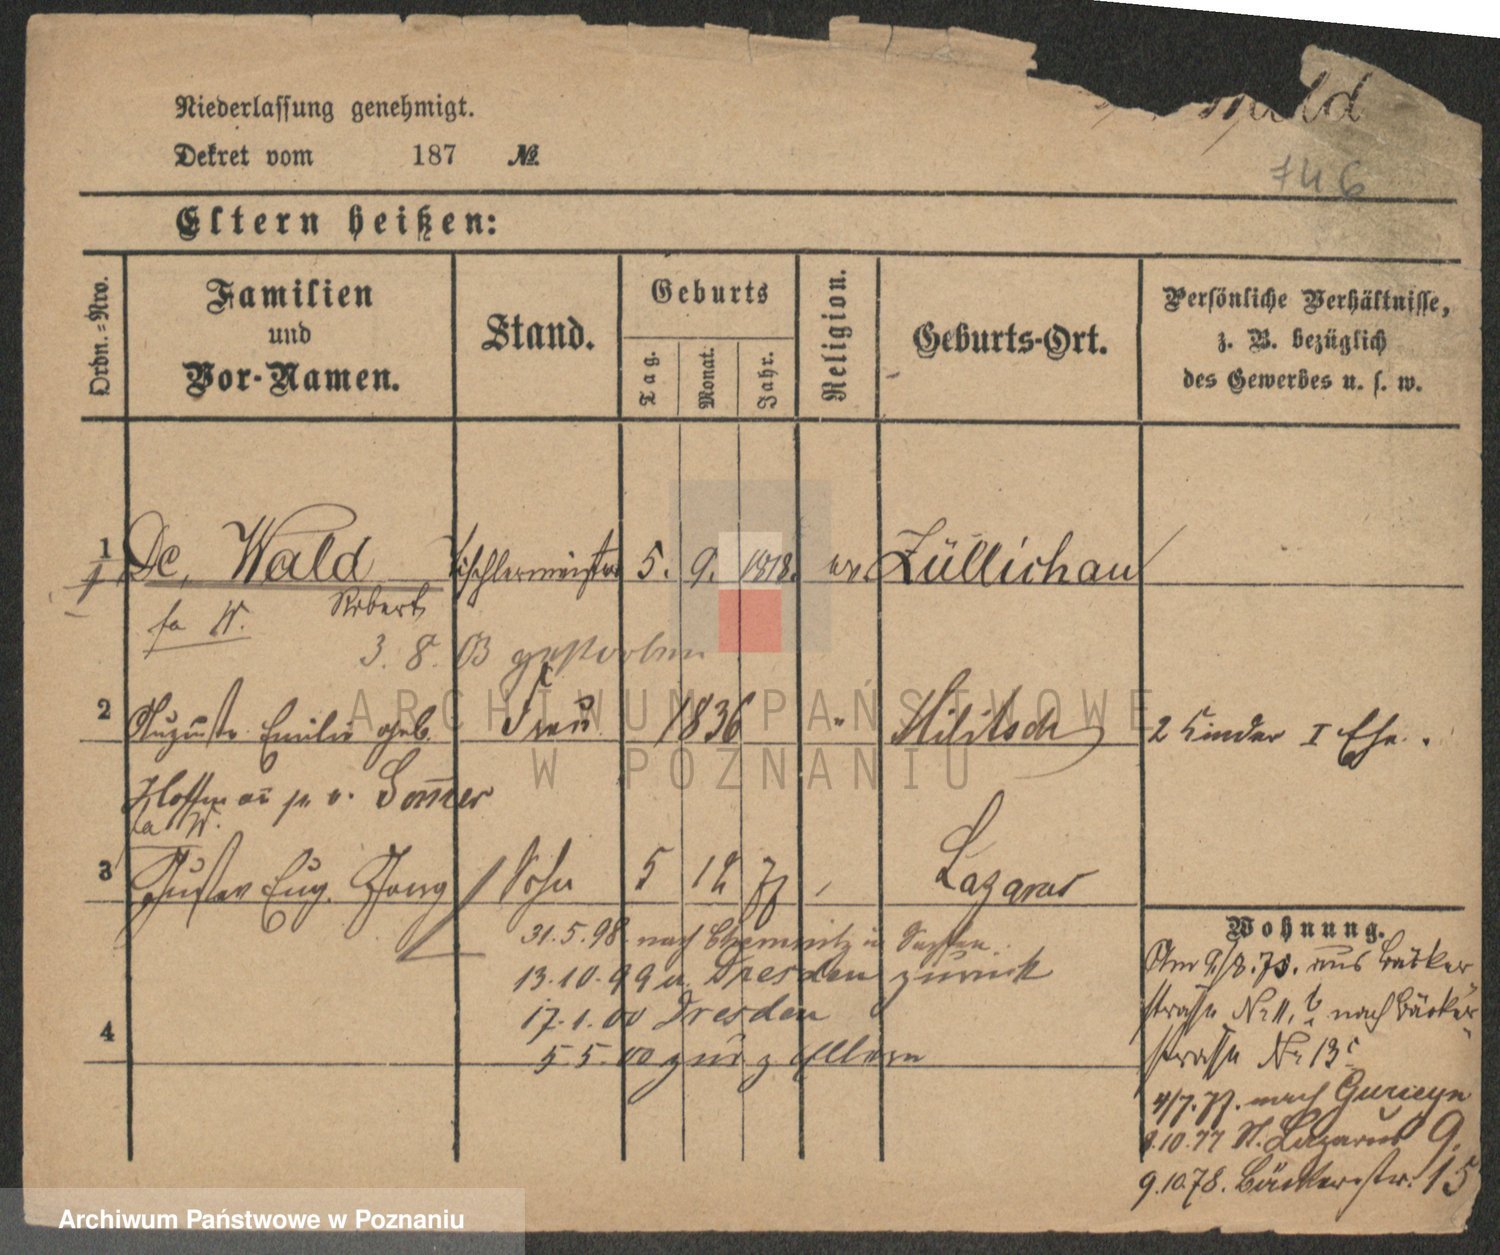 Niederlassung genehmigt.
Dekret vom 187 №
746
Eltern heißen:
Ordn.-Nro.
Familien und Vor-Namen.
Stand.
Geburts
Tag. Monat. Jahr.
Religion.
Geburts-Ort.
Persönliche Verhältnisse,
z. B. bezüglich
des Gewerbes u. s. w.
1 De, Wald Tischlermeister 5. 9. 1818. ev. Züllichau
Robert
3. 8. 03 gestorben
2 Auguste Emilie geb. Frau 1836 " Militsch 2 Kinder I Ehe.
3 Gustav Eug. Georg Sohn 5 12 77 Lazarus
31.5.98. nach Chemnitz in Sachsen.
13.10.99 v. Dresden zurück
17.1.00 Dresden
4
5.5.00 zur z Eltern
Wohnung.
Am 9/8.75. aus Bäcker
strasse Nr 11, b nach Bäcker
strasse Nr 13c
4/7.77. nach Gurczyn
9.10.77 St. Lazarus 9.
9.10.78. Bäckerstr. 15
ARCHIWUM PAŃSTWOWE
W POZNANIU
Archiwum Państwowe w Poznaniu